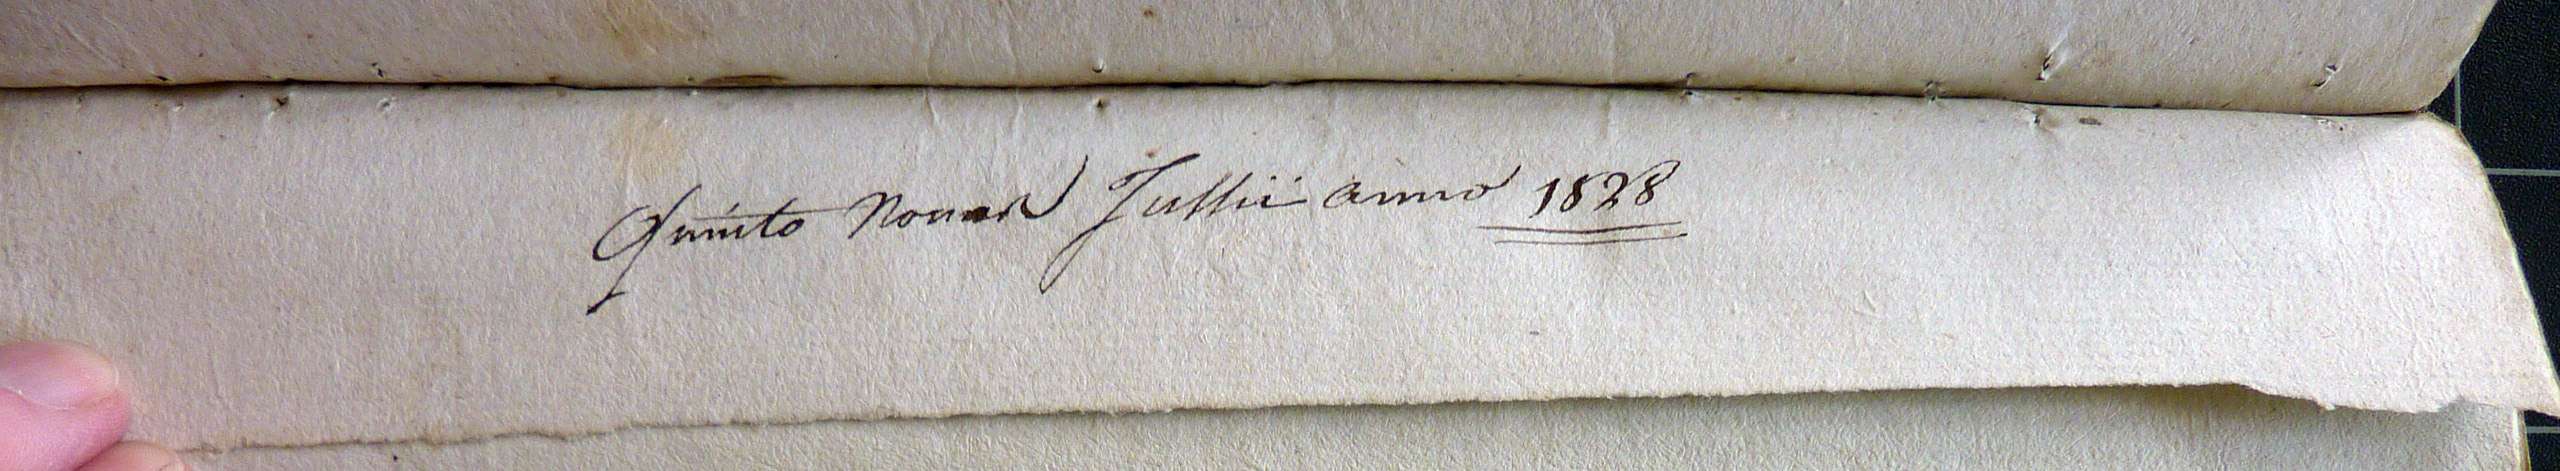 Quinto Nonar Jullii anno 1828